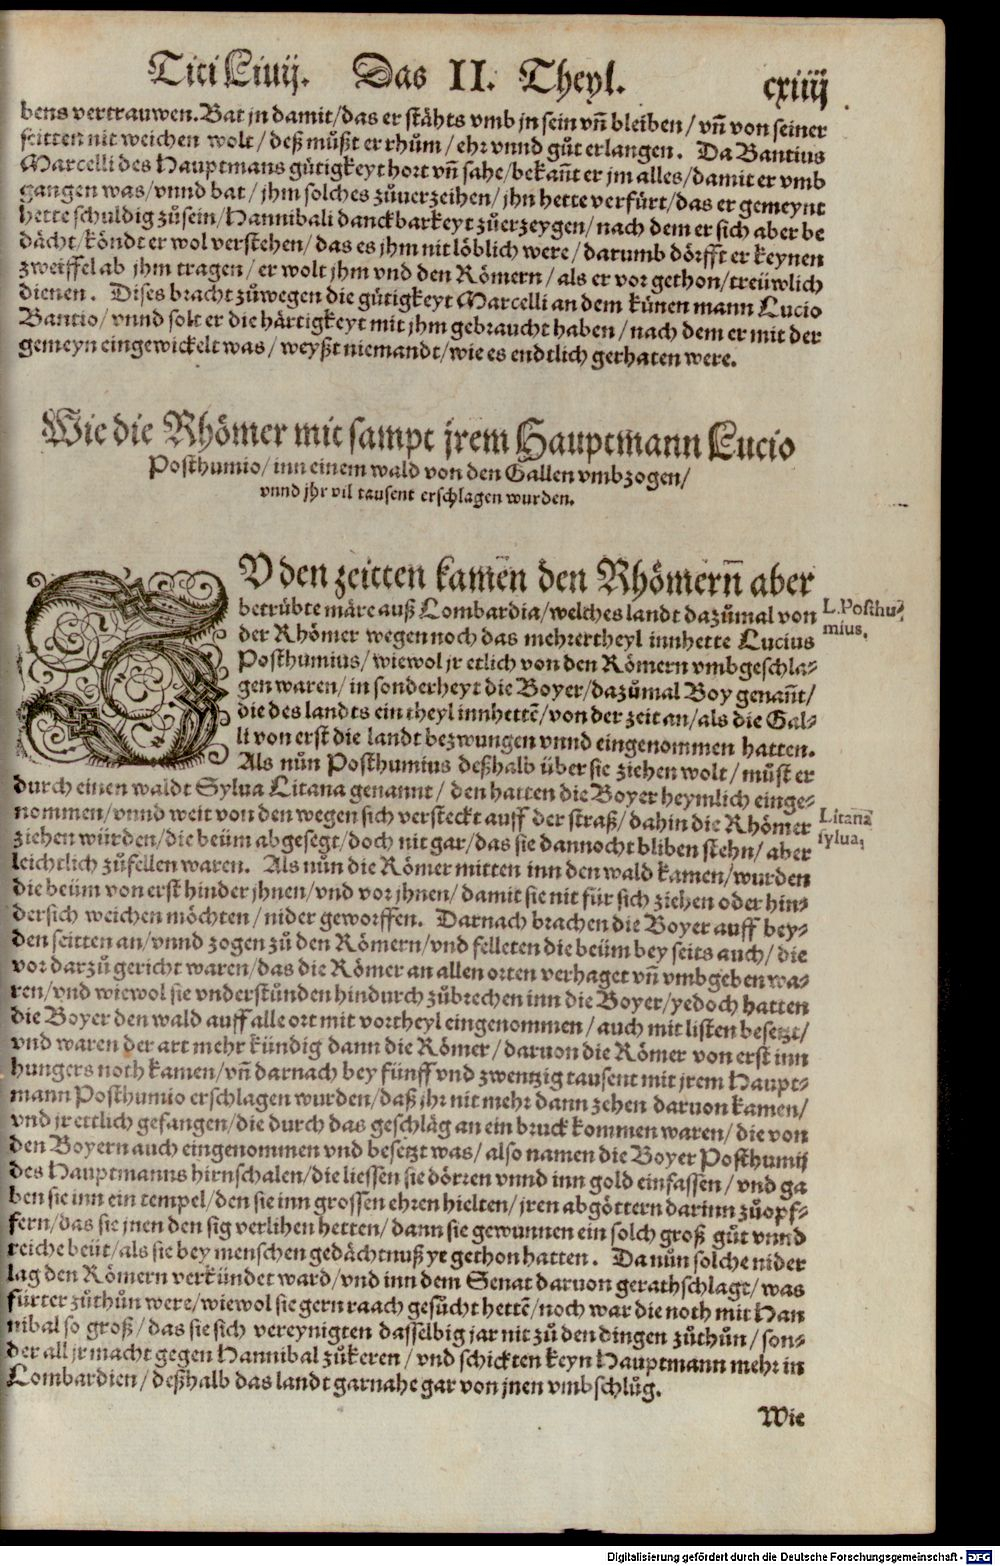 Titi Liuij. Das II. Theyl. cxiiij
bens vertrauwen. Bat jn damit/das er stähts vmb jn sein vn̄ bleiben/ vn̄ von seiner
seitten nit weichen wolt/ deß müßt er rhům/ ehr vnnd gůt erlangen. Da Bantius
Marcelli des Hauptmans gütigkeyt hort vn̄ sahe/bekañt er jm alles/damit er vmb
gangen was/vnnd bat/ jhm solches zůuerzeihen/ jhn hette verfürt/das er gemeynt
hette schuldig zůsein/Hannibali danckbarkeyt zůerzeygen/ nach dem er sich aber be
dächt/köndt er wol verstehen/das es jhm nit löblich were/ darumb dörfft er keynen
zweiffel ab jhm tragen/ er wolt jhm vnd den Römern/ als er vor gethon/treüwlich
dienen. Dises bracht zůwegen die gütigkeyt Marcelli an dem künen mann Lucio
Bantio/vnnd solt er die härtigkeyt mit jhm gebraucht haben/ nach dem er mit der
gemeyn eingewickelt was/ weyßt niemandt/wie es endtlich gerhaten were.
Wie die Rhömer mit sampt jrem Hauptmann Lucio
Posthumio/ inn einem wald von den Gallen vmbzogen/
vnnd jhr vil tausent erschlagen wurden.
ZV den zeitten kamen den Rhömern̄ aber
betrübte märe auß Lombardia/welches landt dazůmal von
L. Posthu-
mius.
der Rhömer wegen noch das mehrertheyl innhette Lucius
Posthumius/ wiewol jr etlich von den Römern vmbgeschla-
gen waren/ in sonderheyt die Boyer/dazůmal Boy genañt/
die des landts ein theyl innhettē/von der zeit an/als die Gal-
li von erst die landt bezwungen vnnd eingenommen hatten.
Als nůn Posthumius deßhalb über sie ziehen wolt/ můst er
durch einen waldt Sylua Litana genannt/ den hatten die Boyer heymlich einge-
nommen/vnnd weit von den wegen sich versteckt auff der straß/dahin die Rhömer
Litana
sylua.
ziehen würden/die beüm abgesegt/doch nit gar/das sie dannocht bliben stehn/ aber
leichtlich zůfellen waren. Als nůn die Römer mitten inn den wald kamen/wurden
die beüm von erst hinder jhnen/vnd vor jhnen/damit sie nit für sich ziehen oder hin-
dersich weichen möchten/ nider geworffen. Darnach brachen die Boyer auff bey-
den seitten an/vnnd zogen zů den Römern/vnd felleten die beüm bey seits auch/ die
vor darzů gericht waren/das die Römer an allen orten verhaget vn̄ vmbgeben wa-
ren/vnd wiewol sie vnderstůnden hindurch zůbrechen inn die Boyer/yedoch hatten
die Boyer den wald auff alle ort mit vortheyl eingenommen/ auch mit listen besetzt/
vnd waren der art mehr kündig dann die Römer/ daruon die Römer von erst inn
hungers noth kamen/vn̄ darnach bey fünff vnd zwentzig tausent mit jrem Haupt-
mann Posthumio erschlagen wurden/daß jhr nit mehr dann zehen daruon kamen/
vnd jr ettlich gefangen/die durch das geschläg an ein bruck kommen waren/ die von
den Boyern auch eingenommen vnd besetzt was/ also namen die Boyer Posthumij
des Hauptmanns hirnschalen/die liessen sie dörren vnnd inn gold einfassen/ vnd ga
ben sie inn ein tempel/den sie inn grossen ehren hielten/ jren abgöttern darinn zůopf-
fern/das sie jnen den sig verlihen hetten/ dann sie gewunnen ein solch groß gůt vnnd
reiche beüt/als sie bey menschen gedächtnuß ye gethon hatten. Da nůn solche nider
lag den Römern verkündet ward/vnd inn dem Senat daruon gerathschlagt/ was
fürter zůthůn were/wiewol sie gern raach gesůcht hettē/noch war die noth mit Han
nibal so groß/das sie sich vereynigten dasselbig jar nit zů den dingen zůthůn/ son-
der all jr macht gegen Hannibal zůkeren/ vnd schickten keyn Hauptmann mehr in
Lombardien/ deßhalb das landt gar nahe gar von jnen vmbschlůg.
Wie
Digitalisierung gefördert durch die Deutsche Forschungsgemeinschaft - DFG